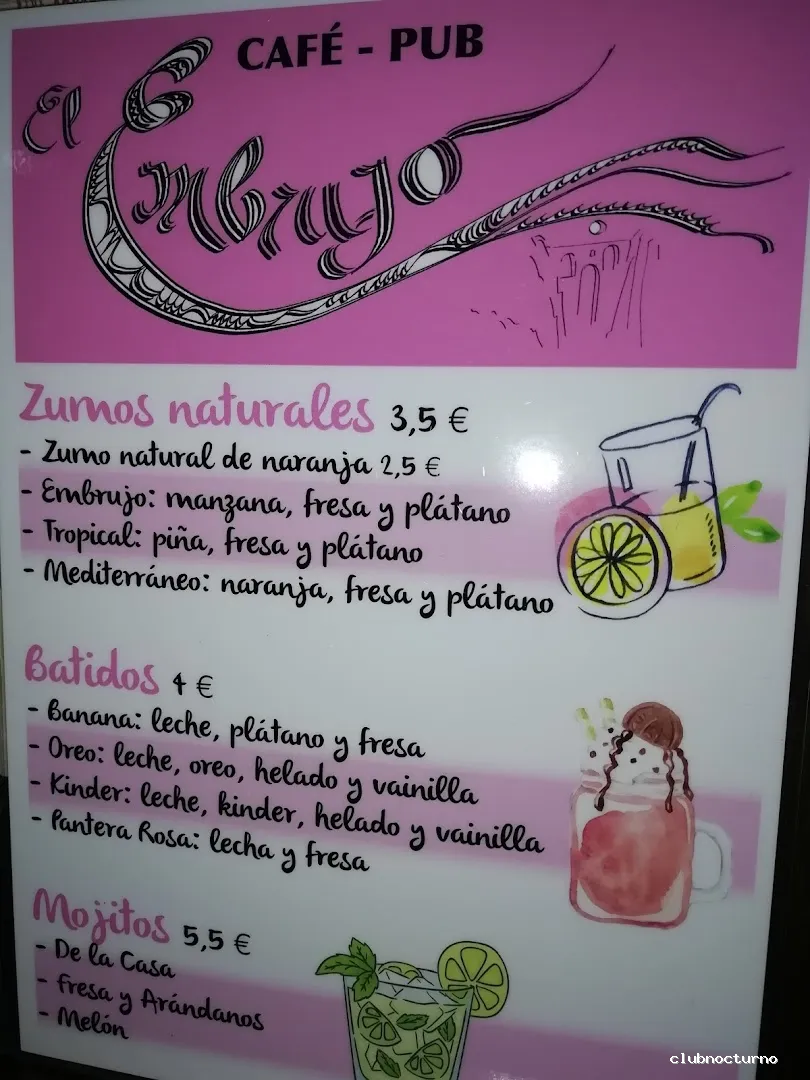 CAFÉ - PUB
El Embrujo
Zumos naturales 3,5 €
- Zumo natural de naranja 2,5 €
- Embrujo: manzana, fresa y plátano
- Tropical: piña, fresa y plátano
- Mediterráneo: naranja, fresa y plátano
Batidos 4 €
- Banana: leche, plátano y fresa
- Oreo: leche, oreo, helado y vainilla
- Kinder: leche, kinder, helado y vainilla
- Pantera Rosa: lecha y fresa
Mojitos 5,5 €
- De la Casa
- Fresa y Arándanos
- Melón
clubnocturno